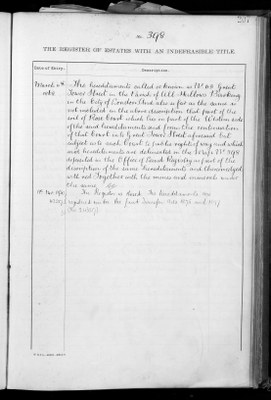 207
No. 398
THE REGISTER OF ESTATES WITH AN INDEFEASIBLE TITLE.
Date of Entry. Description.
March The hereditaments called or known as No. Great
1868 Tower Street in the Parish of All Hallows Barking
in the City of London And also so far as the same is
not included in the above description that part of the
soil of Rose Court which lies in part of the Western side
of the said hereditaments and from the continuation
of that Court into Great Tower Street aforesaid but
subject as to such Court to public rights of way and which
said hereditaments are delineated in the Map No. 398
deposited in the Office of Land Registry as part of the
description of the same hereditaments and thereon edged
with red Together with the mines and minerals under
the same
The Register is closed. The hereditaments are
registered under the Land Transfer Acts 1875 and 1897